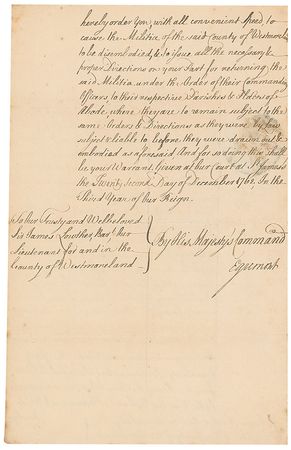 hereby order You, with all convenient Speed, to
cause the Militia of the said County of Westmorld
to be disembodied, & to issue all the necessary &
proper Directions on your Part for returning the
said Militia under the Order of their Commandg
Officers, to their respective Parishes & Places of
Abode where they are to remain subject to the
same Orders & Directions as they were
subject & liable to before they were drawn out &
embodied as aforesaid. And for so doing this shall
be your Warrant. Given at Our Court at St. James's
the Twenty Second Day of December 1762. In the
Third Year of Our Reign.
To Our Trusty and Welbeloved
Sir James Lowther, Bart. Our
Lieutenant for and in the
County of Westmoreland.
By His Majesty's Command
Egremont